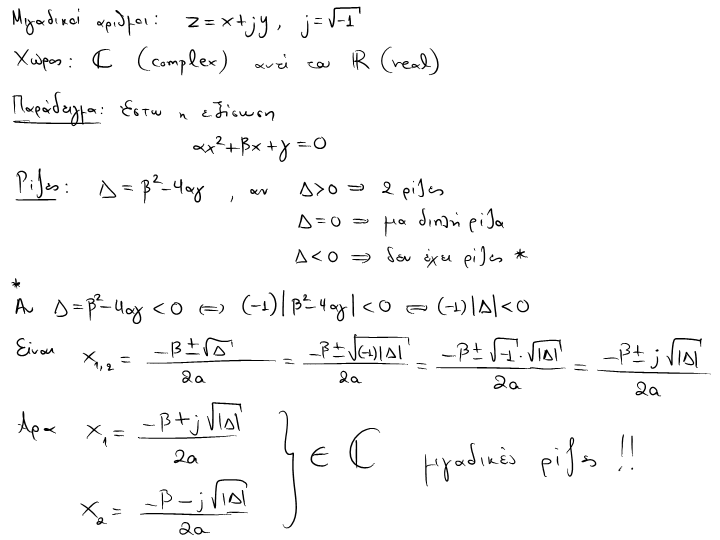 Μιγαδικοί αριθμοι: z = x + jy, j = √-1
Χώρος: ℂ (complex) αντί του ℝ (real)
Παράδειγμα: Εστω η εξίσωση
αx² + βx + γ = 0
Ρίζες: Δ = β² - 4αγ, αν Δ > 0 ⇒ 2 ρίζες
Δ = 0 ⇒ μια διπλή ρίζα
Δ < 0 ⇒ δεν έχει ρίζες *
*
Αν Δ = β² - 4αγ < 0 ⇔ (-1)|β² - 4αγ| < 0 ⇔ (-1)|Δ| < 0
Είναι x₁,₂ = (-β ± √Δ)/2α = (-β ± √(-1)|Δ|)/2α = (-β ± √-1 · √|Δ|)/2α = (-β ± j√|Δ|)/2α
Αρα x₁ = (-β + j√|Δ|)/2α
} ∈ ℂ μιγαδικές ρίζες !!
x₂ = (-β - j√|Δ|)/2α